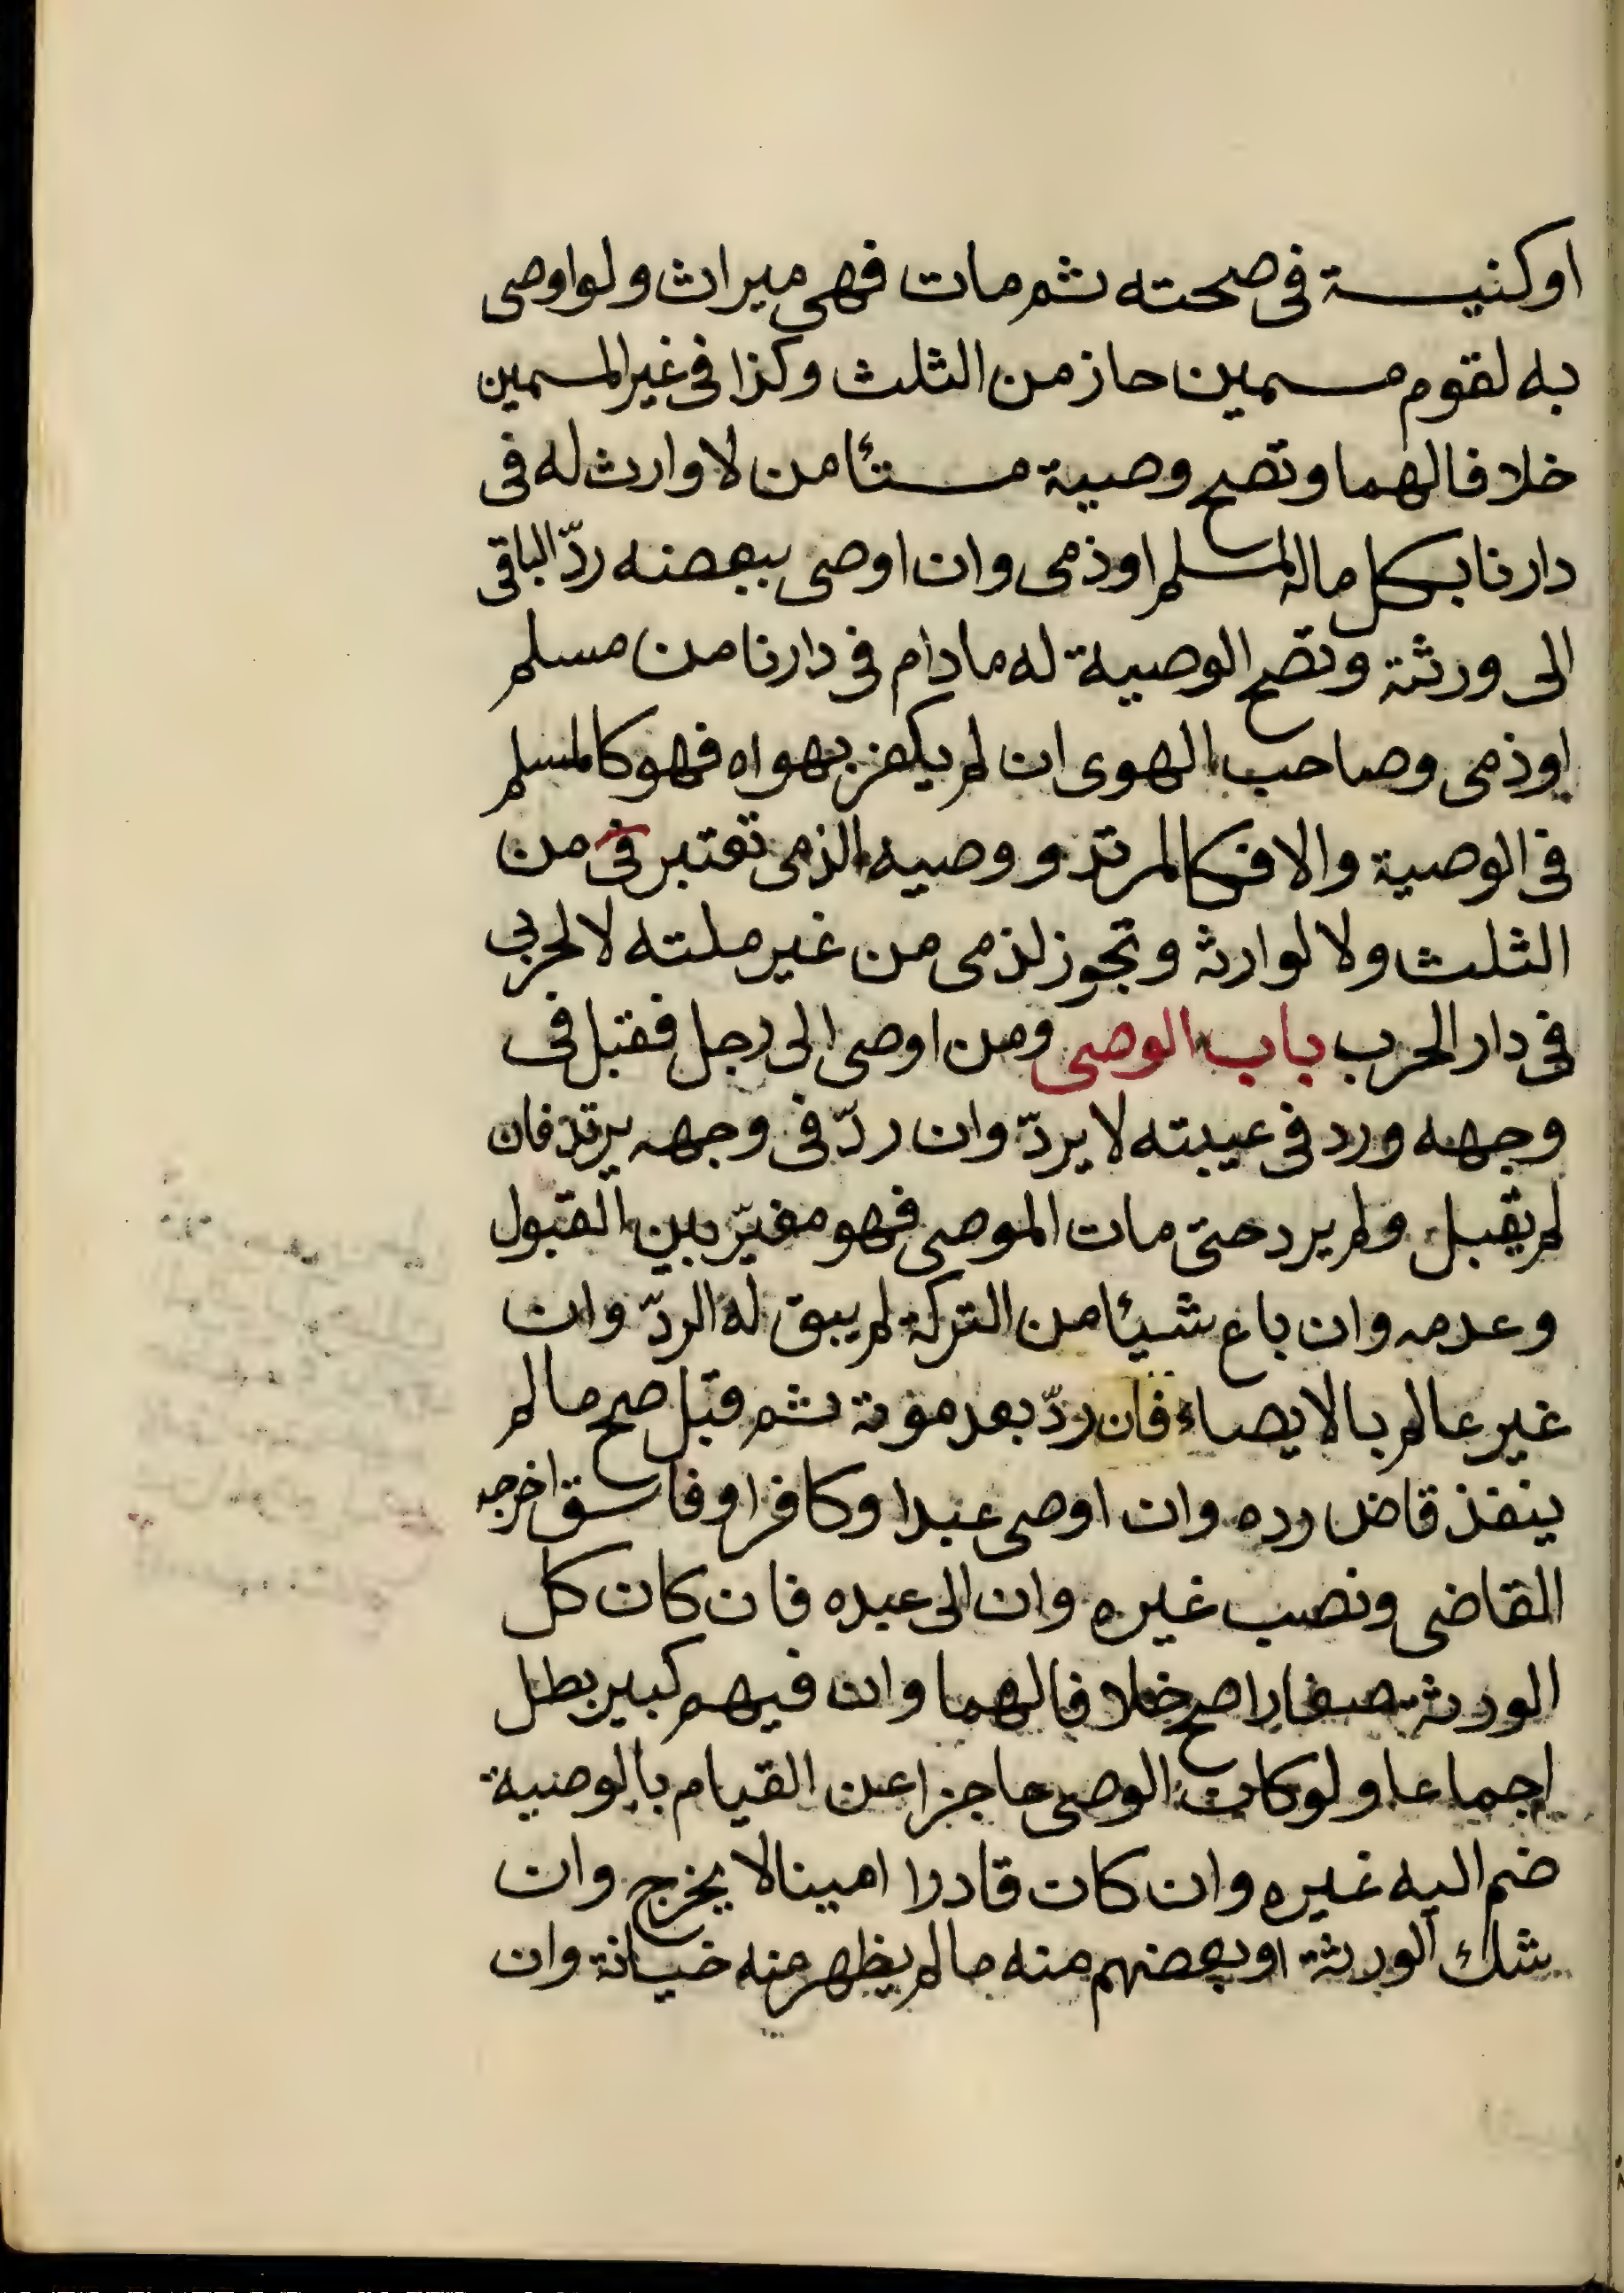 اوكنيسة فى صحته ثم مات فهى ميراث ولواوصى
به لقوم مسمين جاز من الثلث وكذا فى غير المسمين
خلافا لهما وتصح وصية مستئامن لا وارث له فى
دارنا بكل ماله لمسلم اوذمى وان اوصى ببعضه ردّ الباقى
الى ورثته وتصح الوصية له مادام فى دارنا من مسلم
اوذمى وصاحب الهوى ان لم يكفر بهواه فهو كالمسلم
فى الوصية والا فكالمرتد ووصيه الذمى تعتبر فى من
الثلث ولا لوارثه وتجوز لذمى من غير ملته لا لحربى
فى دار الحرب باب الوصى ومن اوصى الى رجل فقبل فى
وجهه ورد فى عيبته لا يردّ وان ردّ فى وجهه يرتد فان
لم يقبل ولم يرد حتى مات الموصى فهو مخيّر بين القبول
وعدمه وان باع شيئا من التركة لم يبق له الردّ وان
غير عالم بالايصاء فان ردّ بعد موته ثم قبل صح مالم
ينفذ قاض رده وان اوصى عبدا وكافرا وفاسق اخرجه
القاضى ونصب غيره وان الى عبده فان كان كل
الورثه صغارا صح خلافا لهما وان فيهم كبير بطل
اجماعا ولوكان الوصى عاجزا عن القيام بالوصية
ضم اليه غيره وان كان قادرا امينا لا يخرج وان
شك الورثة اوبعضهم منه مالم يظهر منه خيانة وان